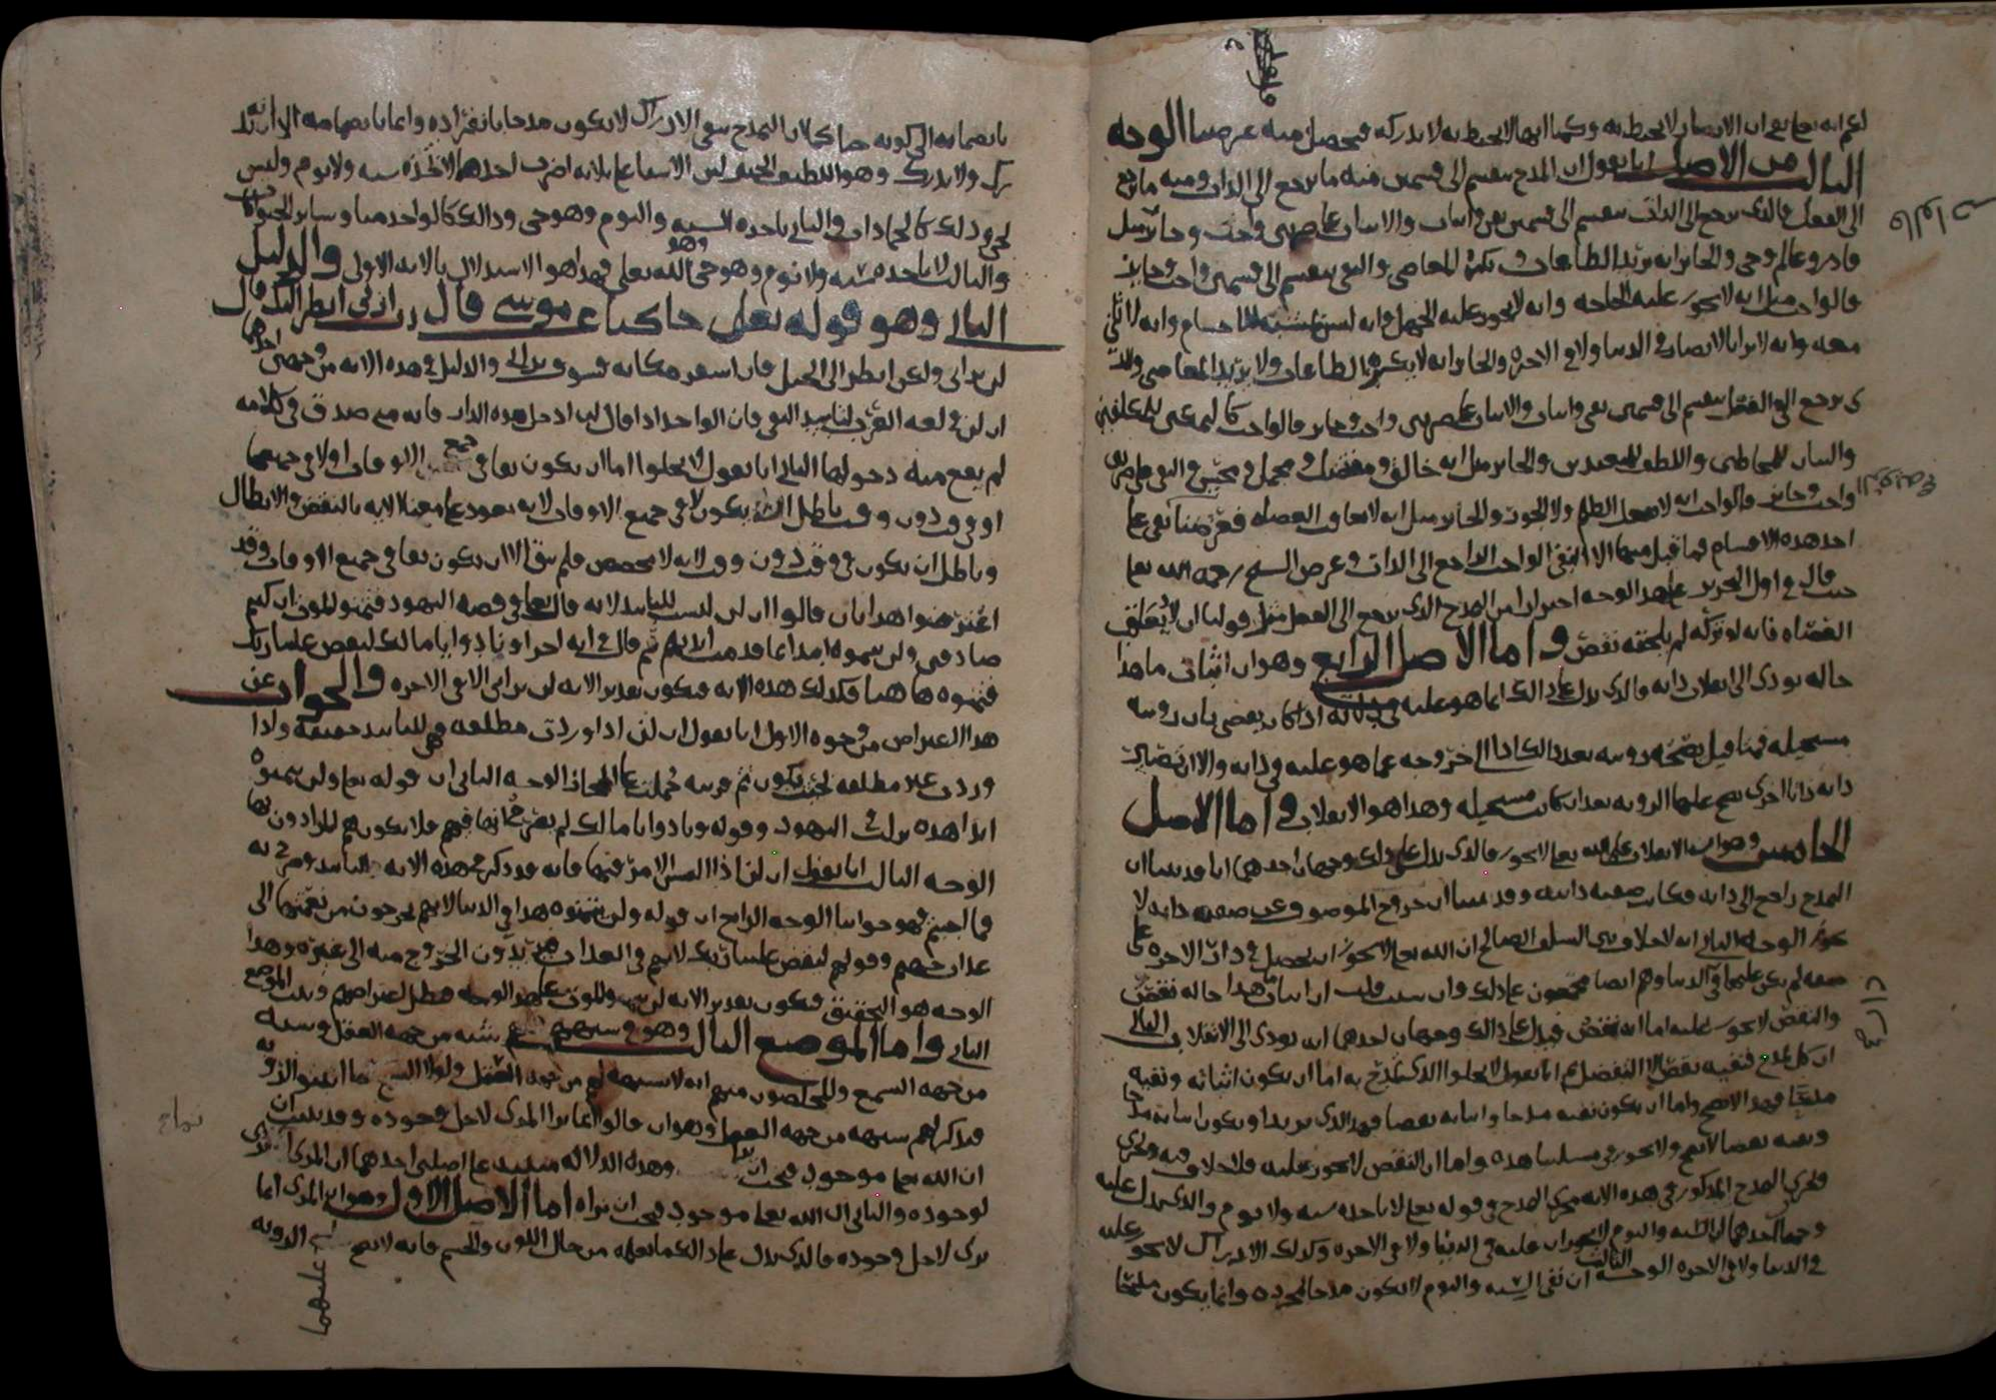 لا نعلم انه تعالى ان الابصار لا تحيط به وكما انها لا تحيط به لا تدركه فيحصل منه غرضنا الوجه
الثالث من الاصل انا نقول ان المدح ينقسم الى قسمين منه ما يرجع الى الذات ومنه ما يرجع
الى الفعل فالذي يرجع الى الذات ينقسم الى قسمين نفي واثبات والاثبات على ضربين واجب وجائز مثل
قادر وعالم وحي والجائز انه يريد الطاعات ويكره المعاصي والنفي ينقسم الى قسمين واجب وجائز
فالواجب مثل انه لا يجوز عليه الحاجة وانه لا يجوز عليه الجهل وانه ليس يشبه الاجسام وانه لا ثاني
معه وانه لا يرى بالابصار في الدنيا ولا في الاخرة والجائز انه لا يكره الطاعات ولا يريد المعاصي والذ
ي يرجع الى الفعل ينقسم الى قسمين نفي واثبات والاثبات على ضربين واجب وجائز فالواجب كالتمكين للمكلفين
والبيان للمخاطبين واللطف للمتعبدين والجائز مثل انه خالق ومفضل ومجمل ومحسن والنفي على ضربين
واجب وجائز فالواجب انه لا يفعل الظلم ولا الجور والجائز مثل انه لا يعاقب العصاة فعرضنا نفي على
احد هذه الاقسام فما قبل منها الا النفي الواجب الراجع الى الذات وغرض الشيخ رحمه الله تعالى
حيث قال في اول التحرير على هذا الوجه احترازا من المدح الذي يرجع الى الفعل مثل قولنا ان لا يعاقب
العصاة فانه لو تركه لم يلحقه نقص واما الاصل الرابع وهو ان اثبات ما هذا
حاله يؤدي الى انقلاب ذاته فالذي يدل على ذلك انما هو عليه في ذاته اذا كان يقضي بان رؤيته
مستحيلة فمتى قيل بصحة رؤيته بعد ذلك كان اخراجه عما هو عليه في ذاته والا ان تصير
ذاته ذاتا اخرى تصح عليها الرؤية بعد ان كانت مستحيلة وهذا هو الانقلاب واما الاصل
الخامس وهو ان الانقلاب على الله تعالى لا يجوز فالذي يدل على ذلك وجهان احدهما انا قد بينا ان
المدح راجع الى ذاته فكان صفة ذاتية وقد بينا ان خروج الموصوف عن صفة ذاته لا
يجوز الوجه الثاني انه لا خلاف بين السلف الصالح ان الله تعالى لا يجوز ان يحصل في دار الاخرة على
صفة لم يكن عليها في الدنيا وهم ايضا مجمعون على ذلك وان شئت قلت ان اثبات ما هذا حاله نقص
والنقص لا يجوز عليه اما انه نقص فيدل على ذلك وجهان احدهما انه يؤدي الى الانقلاب والثاني
ان كل مدح فنفيه نقص الا التفضل ثم انا نقول لا يخلوا الذي تمدح به اما ان يكون اثباته ونفيه
مدحا فهذا لا يصح واما ان يكون نفيه مدحا واثباته نقصا فهو الذي نريد او يكون اثباته مدحا
ونفيه نقصا لا يصح ولا يجوز في مسئلتنا هذه واما ان النقص لا يجوز عليه فلا خلاف فيه ويجري
المدح المذكور في هذه الاية مجرى المدح في قوله تعالى لا تاخذه سنة ولا نوم والذي يدل عليه
وجها احدهما ان السنة والنوم لا يجوزان عليه في الدنيا ولا في الاخرة وكذلك الادراك لا يجوز عليه
في الدنيا ولا في الاخرة الوجه الثالث ان نفي السنة والنوم لا يكون مدحا لمجرده وانما يكون مدحا
بانضمامه الى كونه حيا كما ان التمدح بنفي الادراك لا يكون مدحا بانفراده وانما بانضمامه الى انه
يدرك ولا يدرك وهو اللطيف الخبير لان الاشياء على ثلاثة اضرب احدها لا تاخذه سنة ولا نوم وليس
بحي وذلك كالجمادات والثاني تاخذه السنة والنوم وهو حي وذلك كالواحد منا وسائر الحيوانات
والثالث لا تاخذه سنة ولا نوم وهو حي وهو الله تعالى فهذا هو الاستدلال بالاية الاولى والدليل
الثاني وهو قوله تعالى حاكيا عن موسى قال رب ارني انظر اليك قال
لن تراني ولكن انظر الى الجبل فان استقر مكانه فسوف تراني والدليل في هذه الاية من وجهين احدهما
ان لن في لغة العرب لتأبيد النفي فان الواحد اذا قال لن ادخل هذه الدار فانه متى صدق في كلامه
لم يقع منه دخولها الثاني انا نقول لا يخلوا اما ان يكون نفيا في جميع الاوقات او لا في جميعها
او في وقت دون وقت باطل ان يكون لا في جميع الاوقات لانه يعود على معنى الاية بالنقض والابطال
وباطل ان يكون في وقت دون وقت لانه لا مخصص فلم يبق الا ان يكون نفيا في جميع الاوقات وقد
اعترضوا هذا بان قالوا ان لن ليست للتابيد لانه قال تعالى في قصة اليهود فتمنوا الموت ان كنتم
صادقين ولن يتمنوه ابدا بما قدمت ايديهم ثم قال في اية اخرى ونادوا يا مالك ليقض علينا ربك
فتمنوه ها هنا فكذلك هذه الاية فيكون تقدير الاية لن تراني الا في الاخرة والجواب عن
هذا الاعتراض من وجوه الاول انا نقول ان لن اذا وردت مطلقة فهي للتابيد حقيقة واذا
وردت غير مطلقة بحيث يكون ثم قرينة حملت على المجاز الوجه الثاني ان قوله تعالى ولن يتمنوه
ابدا هذه نزلت في اليهود وقوله ونادوا يا مالك لم يصرح انها فيهم فلا يكون هم المرادون بها
الوجه الثالث انا نقول ان لن اذا التبس الامر فيها فانه قد ذكر في هذه الاية التابيد وصرح به
فما اجبتم فهو جوابنا الوجه الرابع ان قوله ولن يتمنوه هذا في الدنيا لانهم يخرجون من نعيمها الى
عذاب جهنم وقولهم ليقض علينا ربك لانهم في العذاب يريدون الخروج منه الى غيره وهذا
الوجه هو التحقيق فيكون تقدير الاية لن يتمنوا الموت على هذا الوجه فبطل اعتراضهم وثبت الموضع
الثاني واما الموضع الثالث وهو في شبههم فلهم شبه من جهة العقل وشبه
من جهة السمع والمحصلون منهم انه لا شبهة لهم من جهة العقل ولولا السمع ما اثبتوا الرؤية
فنذكر لهم شبهة من جهة العقل وهو ان قالوا انما يرى المرئي لاجل وجوده وقد ثبت ان
ان الله تعالى موجود فيجب ان يرى وهذه الدلالة مبنية على اصلين احدهما ان المرئي انما يرى
لوجوده والثاني ان الله تعالى موجود فيجب ان نراه اما الاصل الاول وهو ان المرئي انما
يرى لاجل وجوده فالذي يدل على ذلك ما نعلمه من حال اللون والجسم فانه لا تصح الرؤية
عليهما